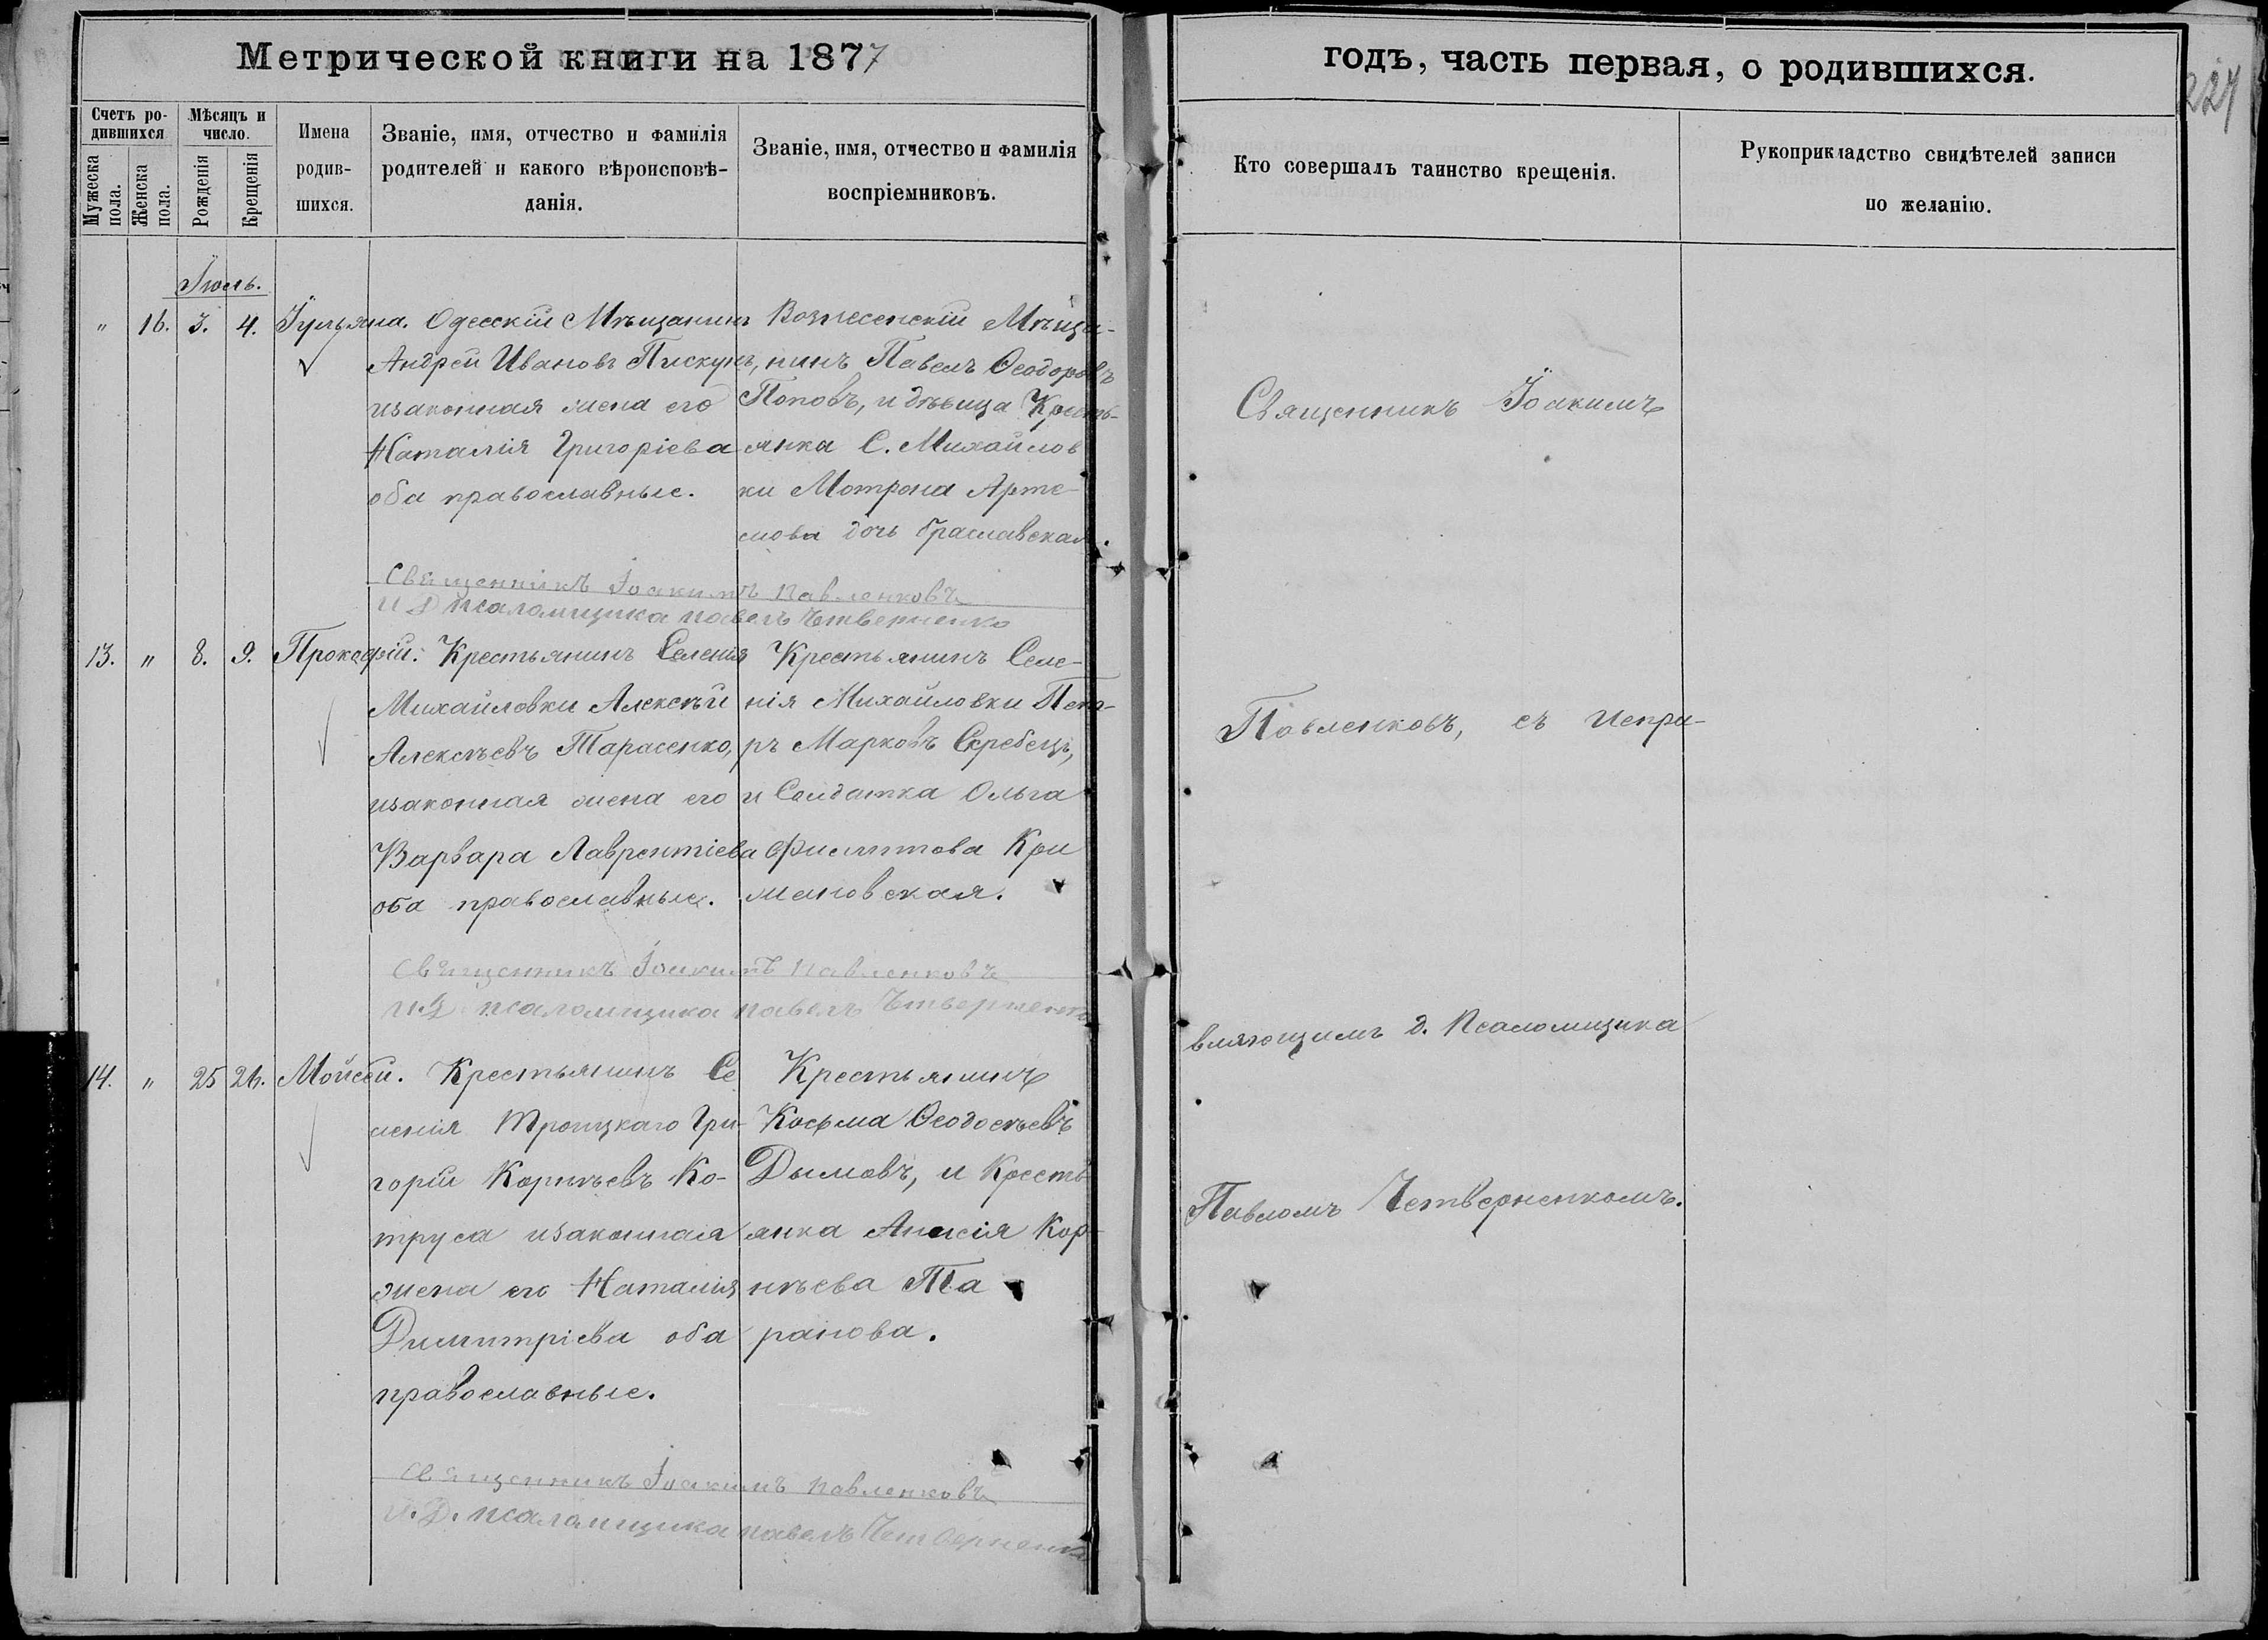 Метрической книги на 1877
годъ, часть первая, о родившихся.
227
Счетъ ро-
дившихся
Мужеска
пола.
Женска
пола.
Мѣсяцъ и
число.
Рожденія
Крещенія
Имена
родив-
шихся.
Званіе, имя, отчество и фамилія
родителей и какого вѣроисповѣ-
данія.
Званіе, имя, отчество и фамилія
воспріемниковъ.
Кто совершалъ таинство крещенія.
Рукоприкладство свидѣтелей записи
по желанію.
Іюль.
" 16. 3. 4. Іульяна.
Одесскій Мѣщанинъ
Андрей Ивановъ Пискунъ,
изаконная жена его
Наталія Григоріева
оба православные.
Вознесенскій Мѣща-
нинъ Павелъ Ѳеодоровъ
Поповъ, и дѣвица Кресть-
янка С. Михайлов
ки Мотрона Арте-
мова дочь Браславская.
Священникъ Іоакимъ Павленковъ
И Д псаломщика павелъ Четверненко
13. " 8. 9. Прокофій.
Крестьянинъ Селенія
Михайловки Алексѣй
Алексѣевъ Тарасенко,
изаконная жена его
Варвара Лаврентіева
оба православные.
Крестьянинъ Селе-
нія Михайловки Пет-
ръ Марковъ Серебецъ,
и Солдатка Ольга
Филиппова Кри
мановская.
Священникъ Іоакимъ Павленковъ
И.Д. псаломщика павелъ Четверненко
14. " 25 26. Мойсей.
Крестьянинъ Се
ленія Троицкаго Гри-
горій Корнѣевъ Ко-
труса изаконная
жена его Наталія
Димитріева оба
православные.
Крестьянинъ
Косьма Ѳеодосѣевъ
Дымовъ, и Кресть
янка Анисія Кор-
нѣева Та
ранова.
Священникъ Іоакимъ Павленковъ
И.Д. псаломщика павелъ Четверненко
Священникъ Іоакимъ
Павленковъ, съ испра-
вляющимъ д. Псаломщика
Павломъ Четверненкомъ.